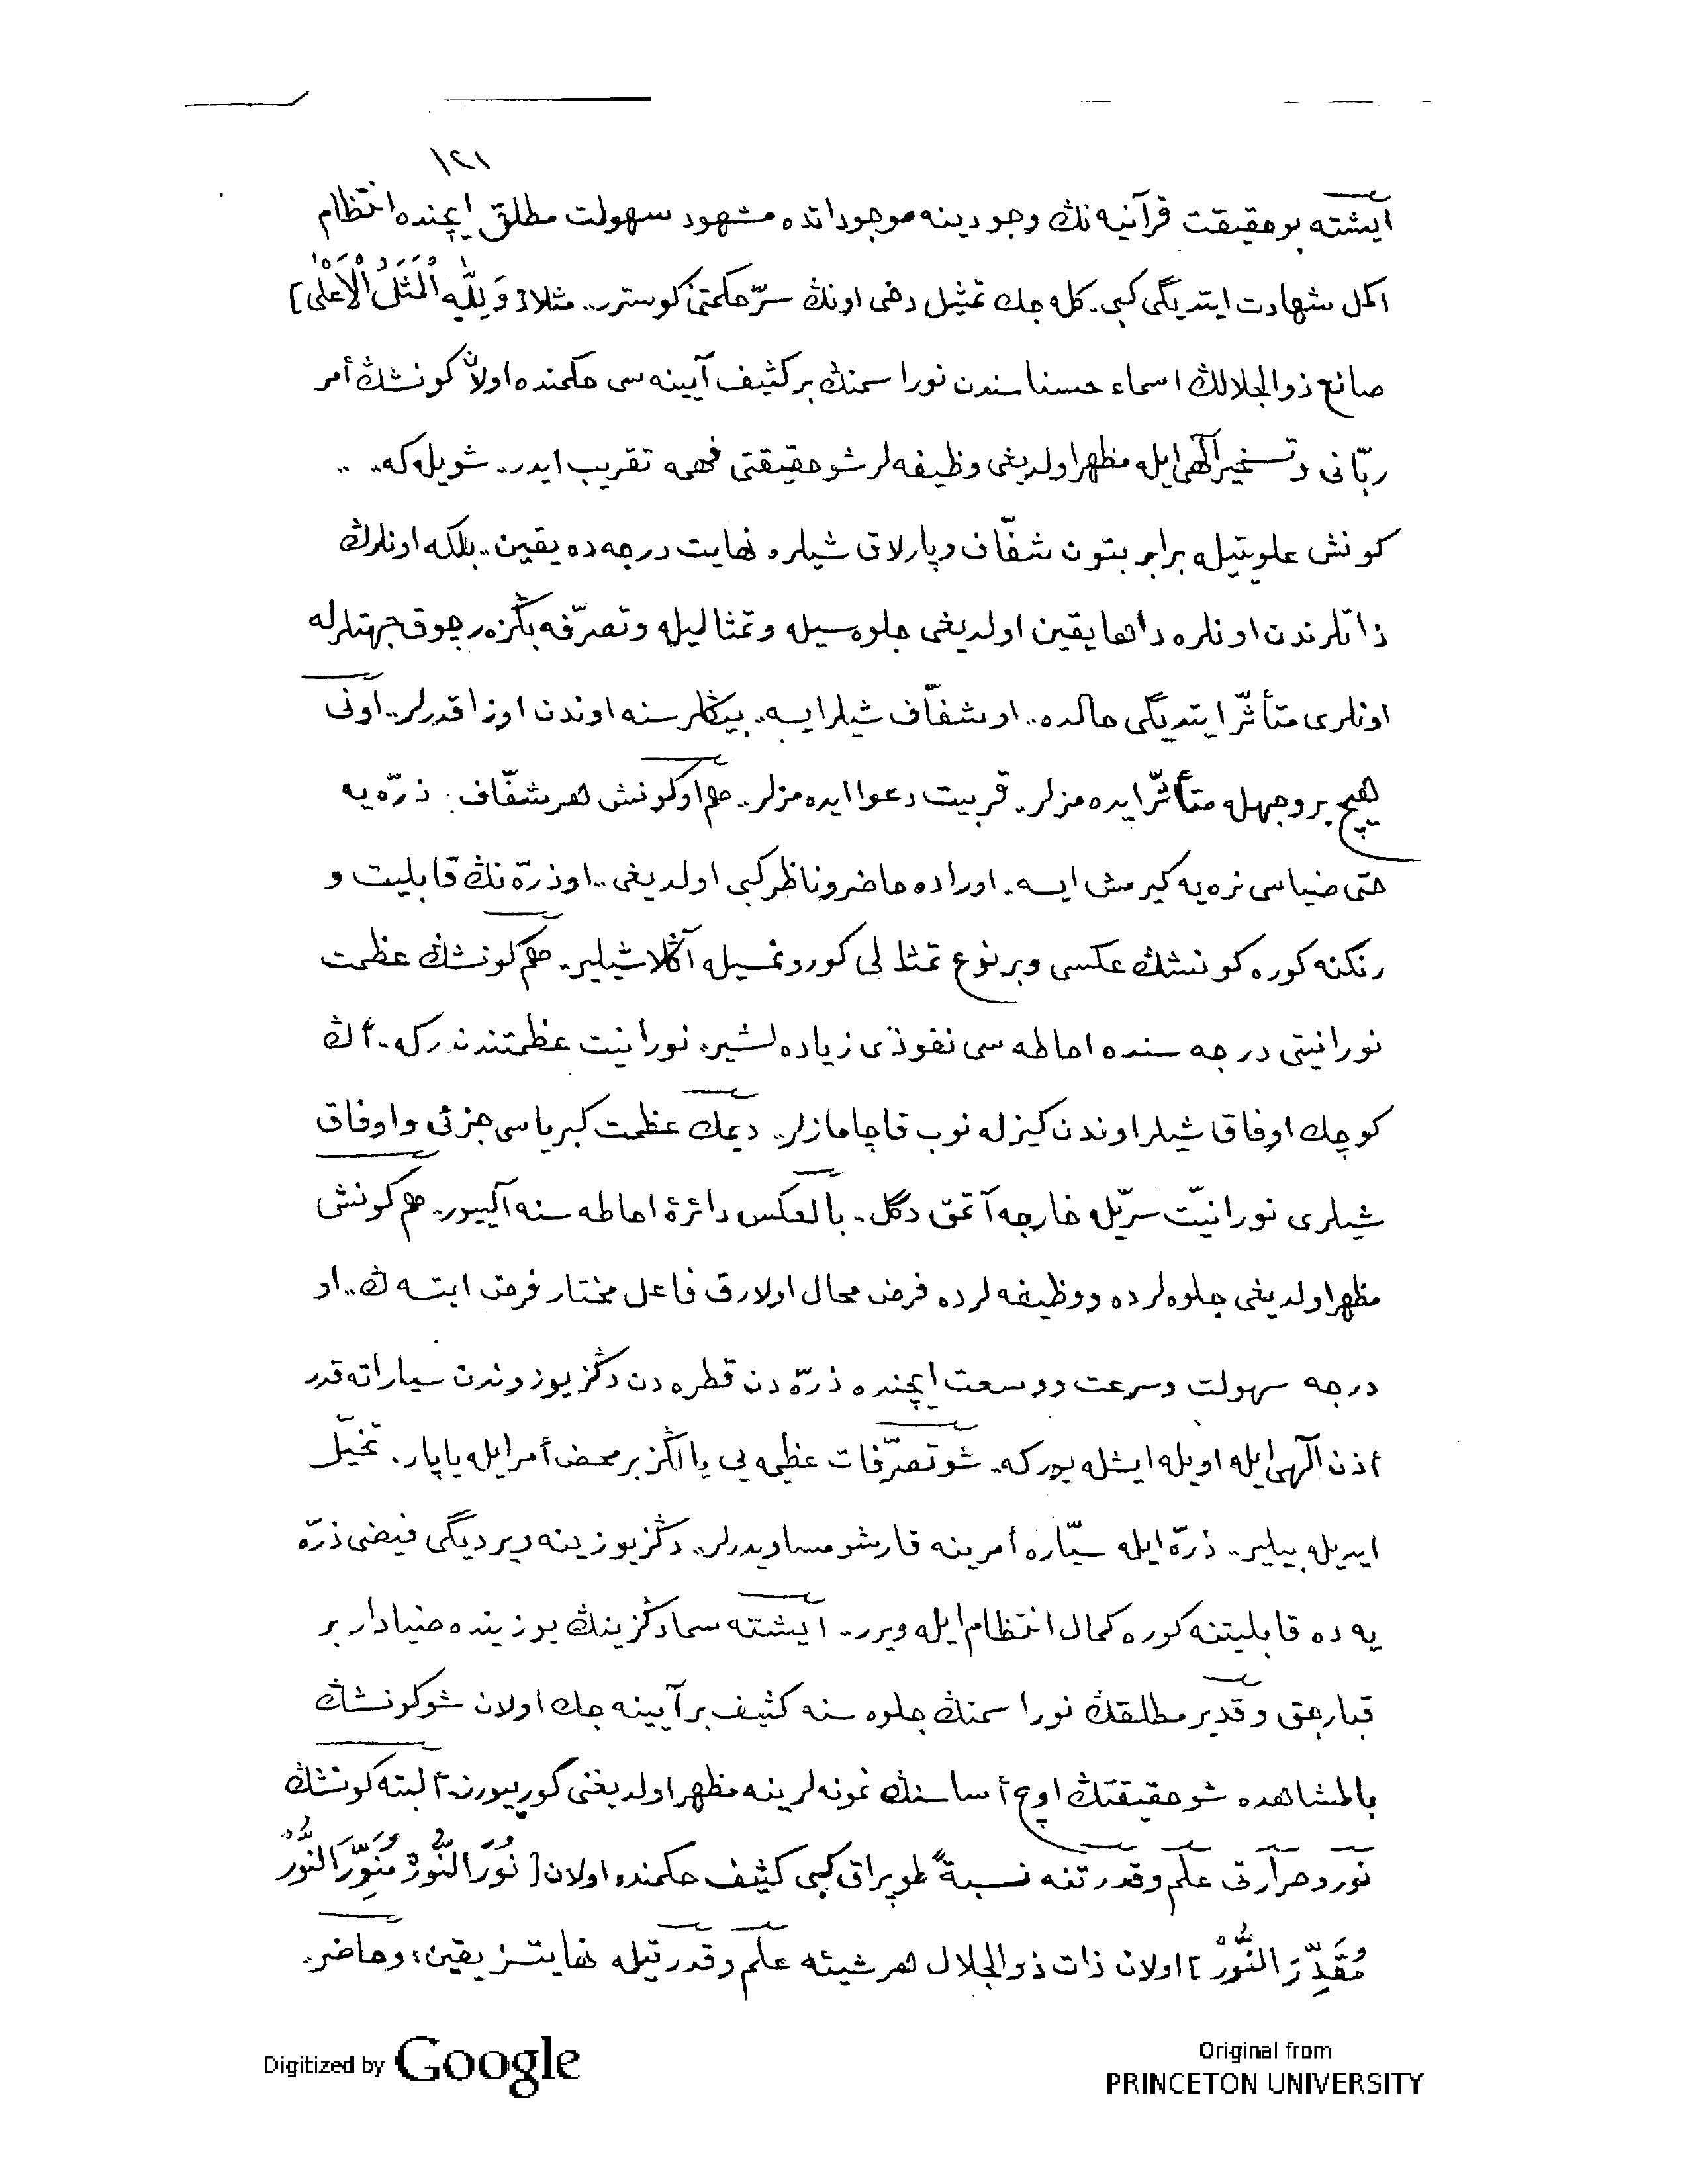 ١٢١
ايشته بو حقيقت قرآنيه نڭ وجودينه موجوداتده مشهود سهولت مطلق ايچنده انتظام
اكمل شهادت ايتديگى كبى. كله جك تمثيل دخى اونڭ سرّ حكمتنى كوسترر.. مثلا [وَ لِلّٰهِ الْمَثَلُ الْاَعْلٰى]
صانع ذوالجلالڭ اسماء حسناسندن نور اسمنڭ بر كثيف آيينه سى حكمنده اولان كونشڭ أمر
ربّانى و تسخير آلهى ايله مظهر اولديغى وظيفه لر شو حقيقتى فهمه تقريب ايدر.. شويله كه.. ..
كونش علويتيله برابر بتون شفّاف و پارلاق شيلره نهايت درجه ده يقين.. بلكه اونلرڭ
ذاتلرندن اونلره داها يقين اولديغى جلوه سيله و تمثاليله و تصرّفه بڭزه ر چوق جهتلرله
اونلرى متأثّر ايتديگى حالده.. او شفّاف شيلر ايسه.. بيڭلر سنه اوندن اوزاقدرلر.. اونى
هيچ بر وجهله متأثّر ايده مزلر.. قربيت دعوا ايده مزلر.. هم او كونش هر شفّاف ذرّه يه
حتى ضياسى نره يه كيرمش ايسه. اوراده حاضر و ناظر كبى اولديغى.. او ذرّه نڭ قابليت و
رنكنه كوره كونشڭ عكسى و بر نوع تمثالى كورونمسيله آڭلاشيلير.. هم كونشڭ عظمت
نورانيتى درجه سنده احاطه سى نفوذى زياده لشير. نورانيت عظمتندندر كه.. أڭ
كوچك اوفاق شيلر اوندن كيزله نوب قاچامازلر.. ديمك عظمت كبرياسى جزئى و اوفاق
شيلرى نورانيّت سرّيله خارجه آتمق دگل.. بالعكس دائرۀ احاطه سنه آلييور.. هم كونش
مظهر اولديغى جلوه لرده و وظيفه لرده فرض محال اولارق فاعل مختار فرض ايتسه ڭ.. او
درجه سهولت و سرعت و وسعت ايچنده ذرّه دن قطره دن دڭز يوزندن سياراته قدر
أذن آلهى ايله اويله ايشله يور كه. شو تصرّفات عظيمه يى يالڭز بر محض أمر ايله ياپار. تخيّل
ايديله بيلير.. ذرّه ايله سيّاره أمرينه قارشو مساويدرلر.. دڭز يوزينه ويرديگى فيضى ذرّه
يه ده قابليتنه كوره كمال انتظام ايله ويرر.. ايشته سما دڭزينڭ يوزينده ضيادار بر
قبارجق و قدير مطلقڭ نور اسمنڭ جلوه سنه كثيف بر آيينه جك اولان شو كونشڭ
بالمشاهده شو حقيقتڭ اوچ أساسنڭ نمونه لرينه مظهر اولديغنى كورييورز. ألبته كونشڭ
نور و حرارتى علم و قدرتنه نسبةً طوپراق كبى كثيف حكمنده اولان [نُورَ النُّورْ مُنَوِّرَ النُّورْ
مُقَدِّرَ النُّورْ] اولان ذات ذوالجلال هر شيئه علم و قدرتيله نهايتسز يقين، و حاضر.
Digitized by Google
Original from
PRINCETON UNIVERSITY